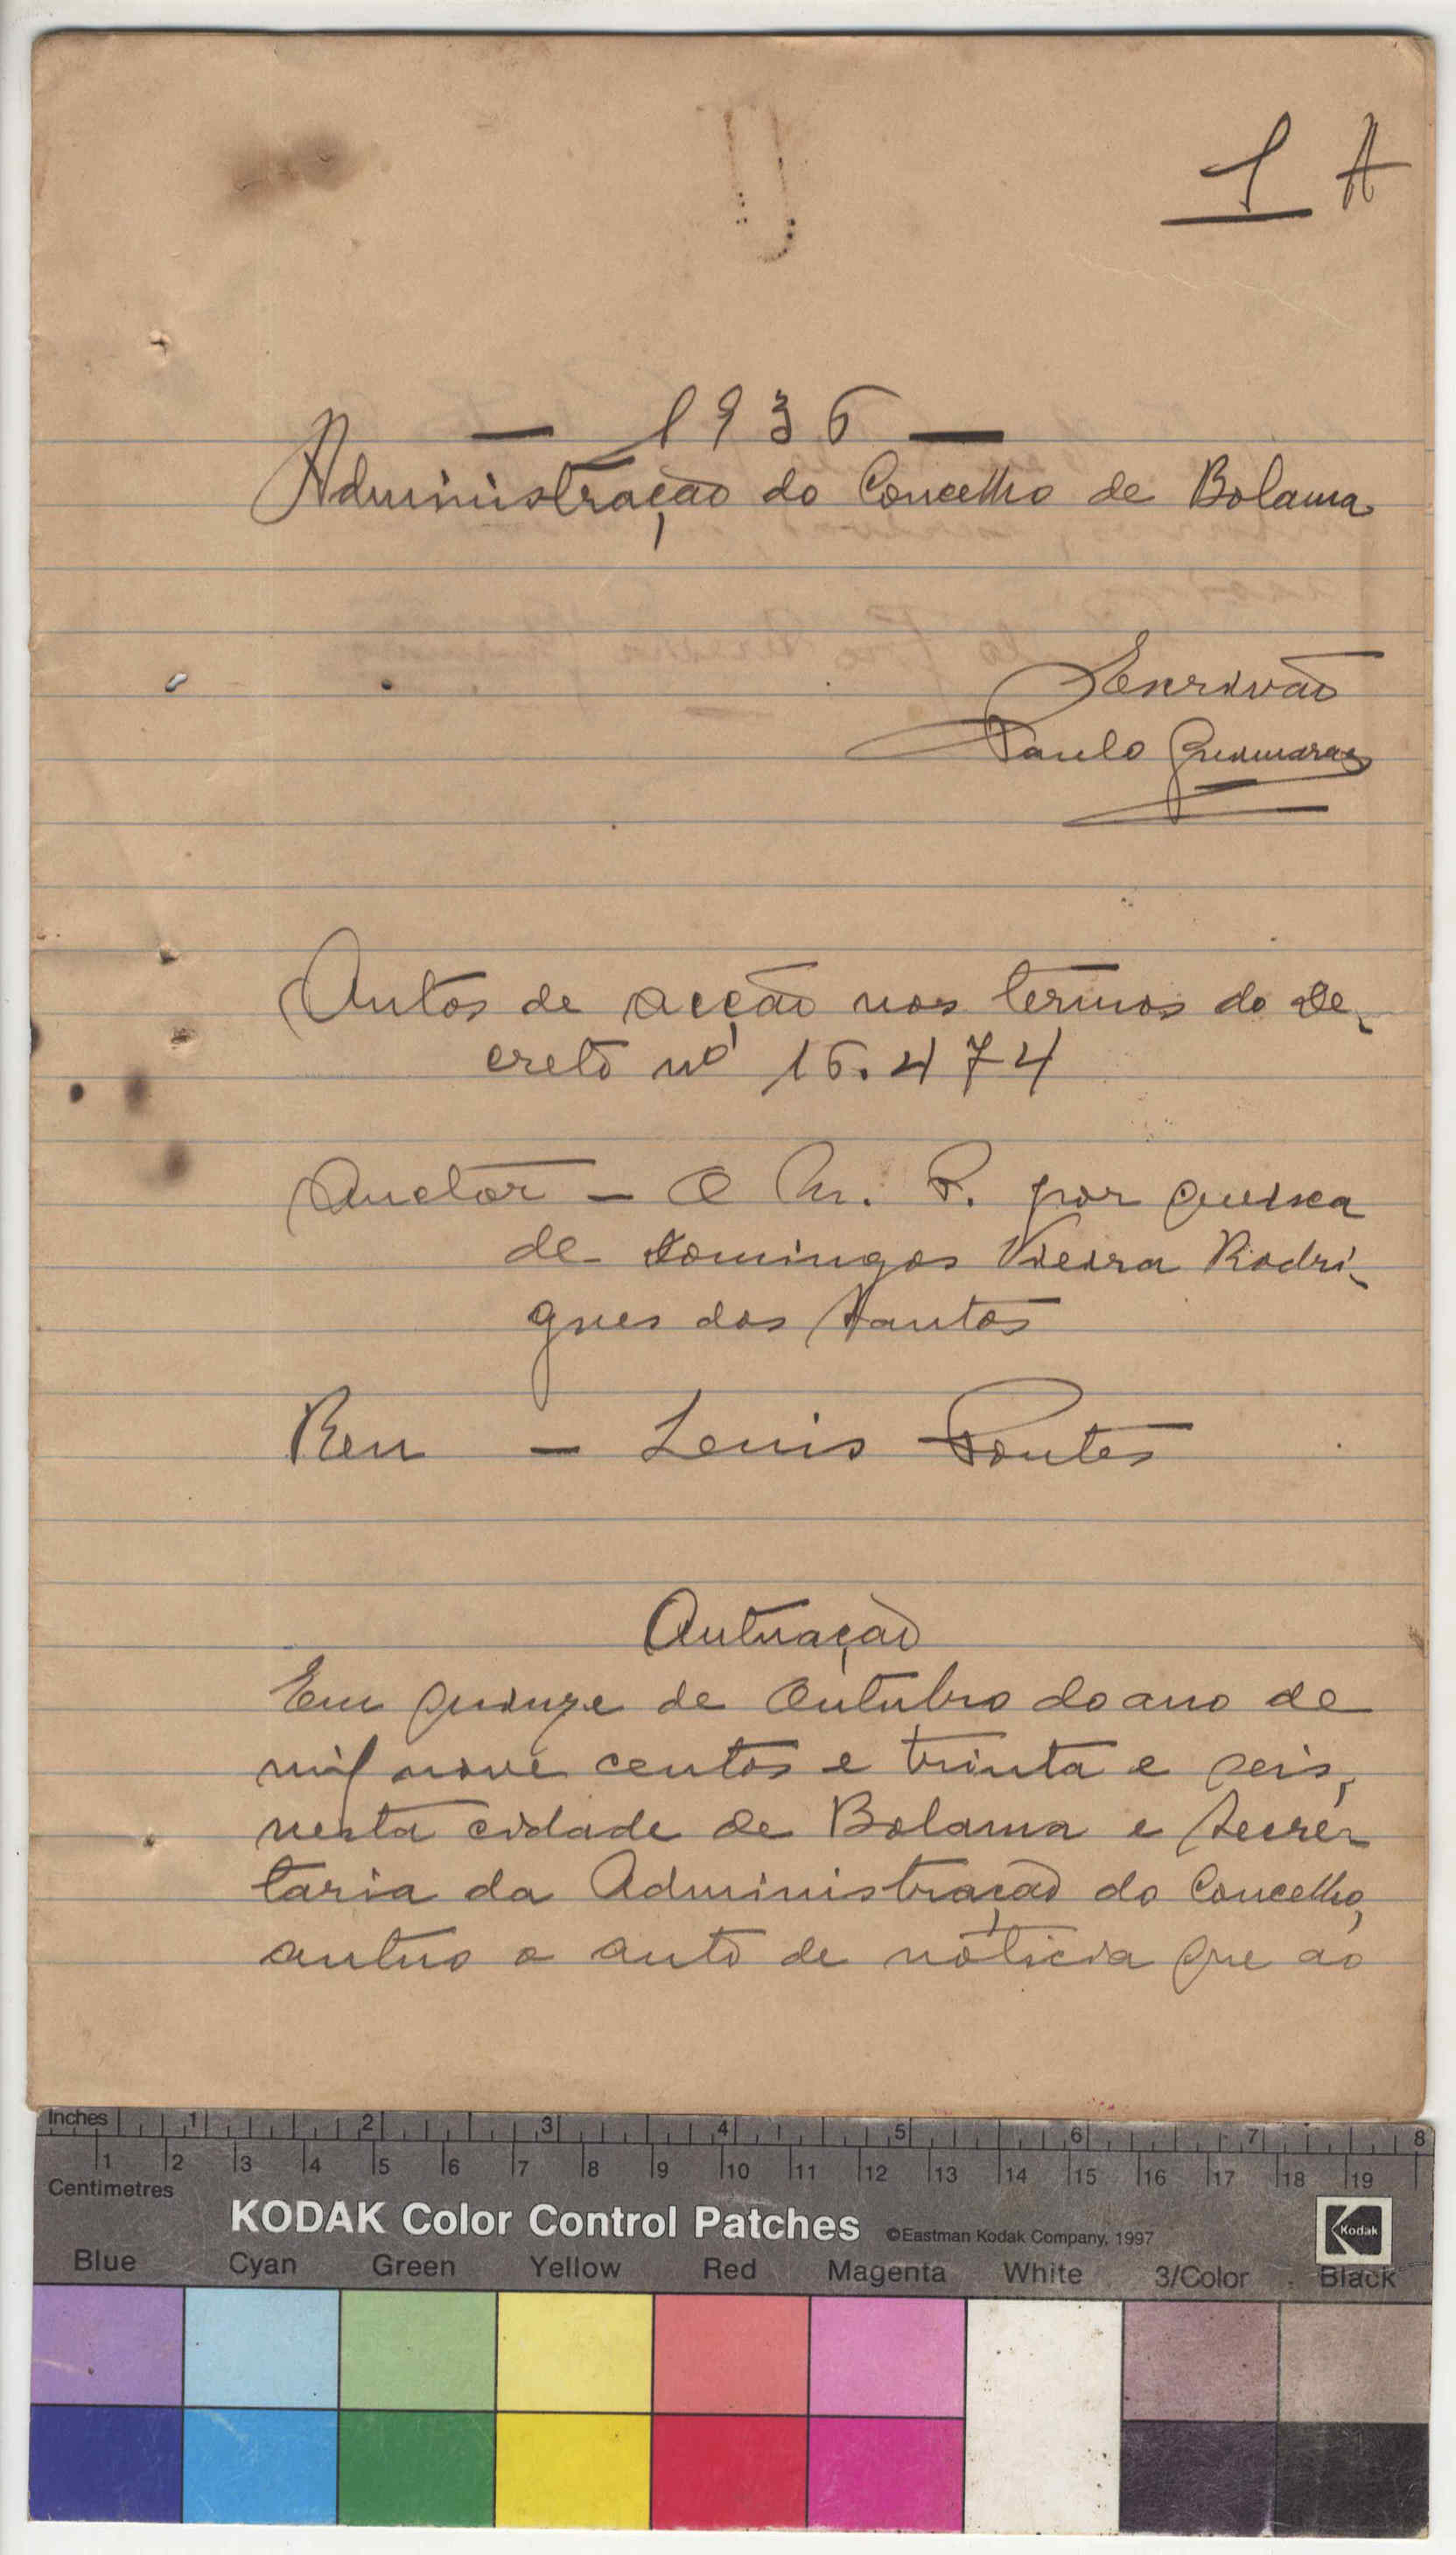 1 A
— 1936 —
Administração do Concelho de Bolama
Escrivão
Paulo Guimarães
Autos de acção nos termos do De-
creto nº 16.474
Auctor — O M. P. por queixa
de Domingos Vieira Rodri-
gues dos Santos
Reu — Luis Pontes
Autuação
Em quinze de Outubro do ano de
mil nove centos e trinta e seis,
nesta cidade de Bolama e Secre-
taria da Administração do Concelho,
autuo o auto de noticia que ao
Inches 1 2 3 4 5 6 7 8
1 2 3 4 5 6 7 8 9 10 11 12 13 14 15 16 17 18 19
Centimetres
KODAK Color Control Patches ©Eastman Kodak Company, 1997 Kodak
Blue Cyan Green Yellow Red Magenta White 3/Color Black